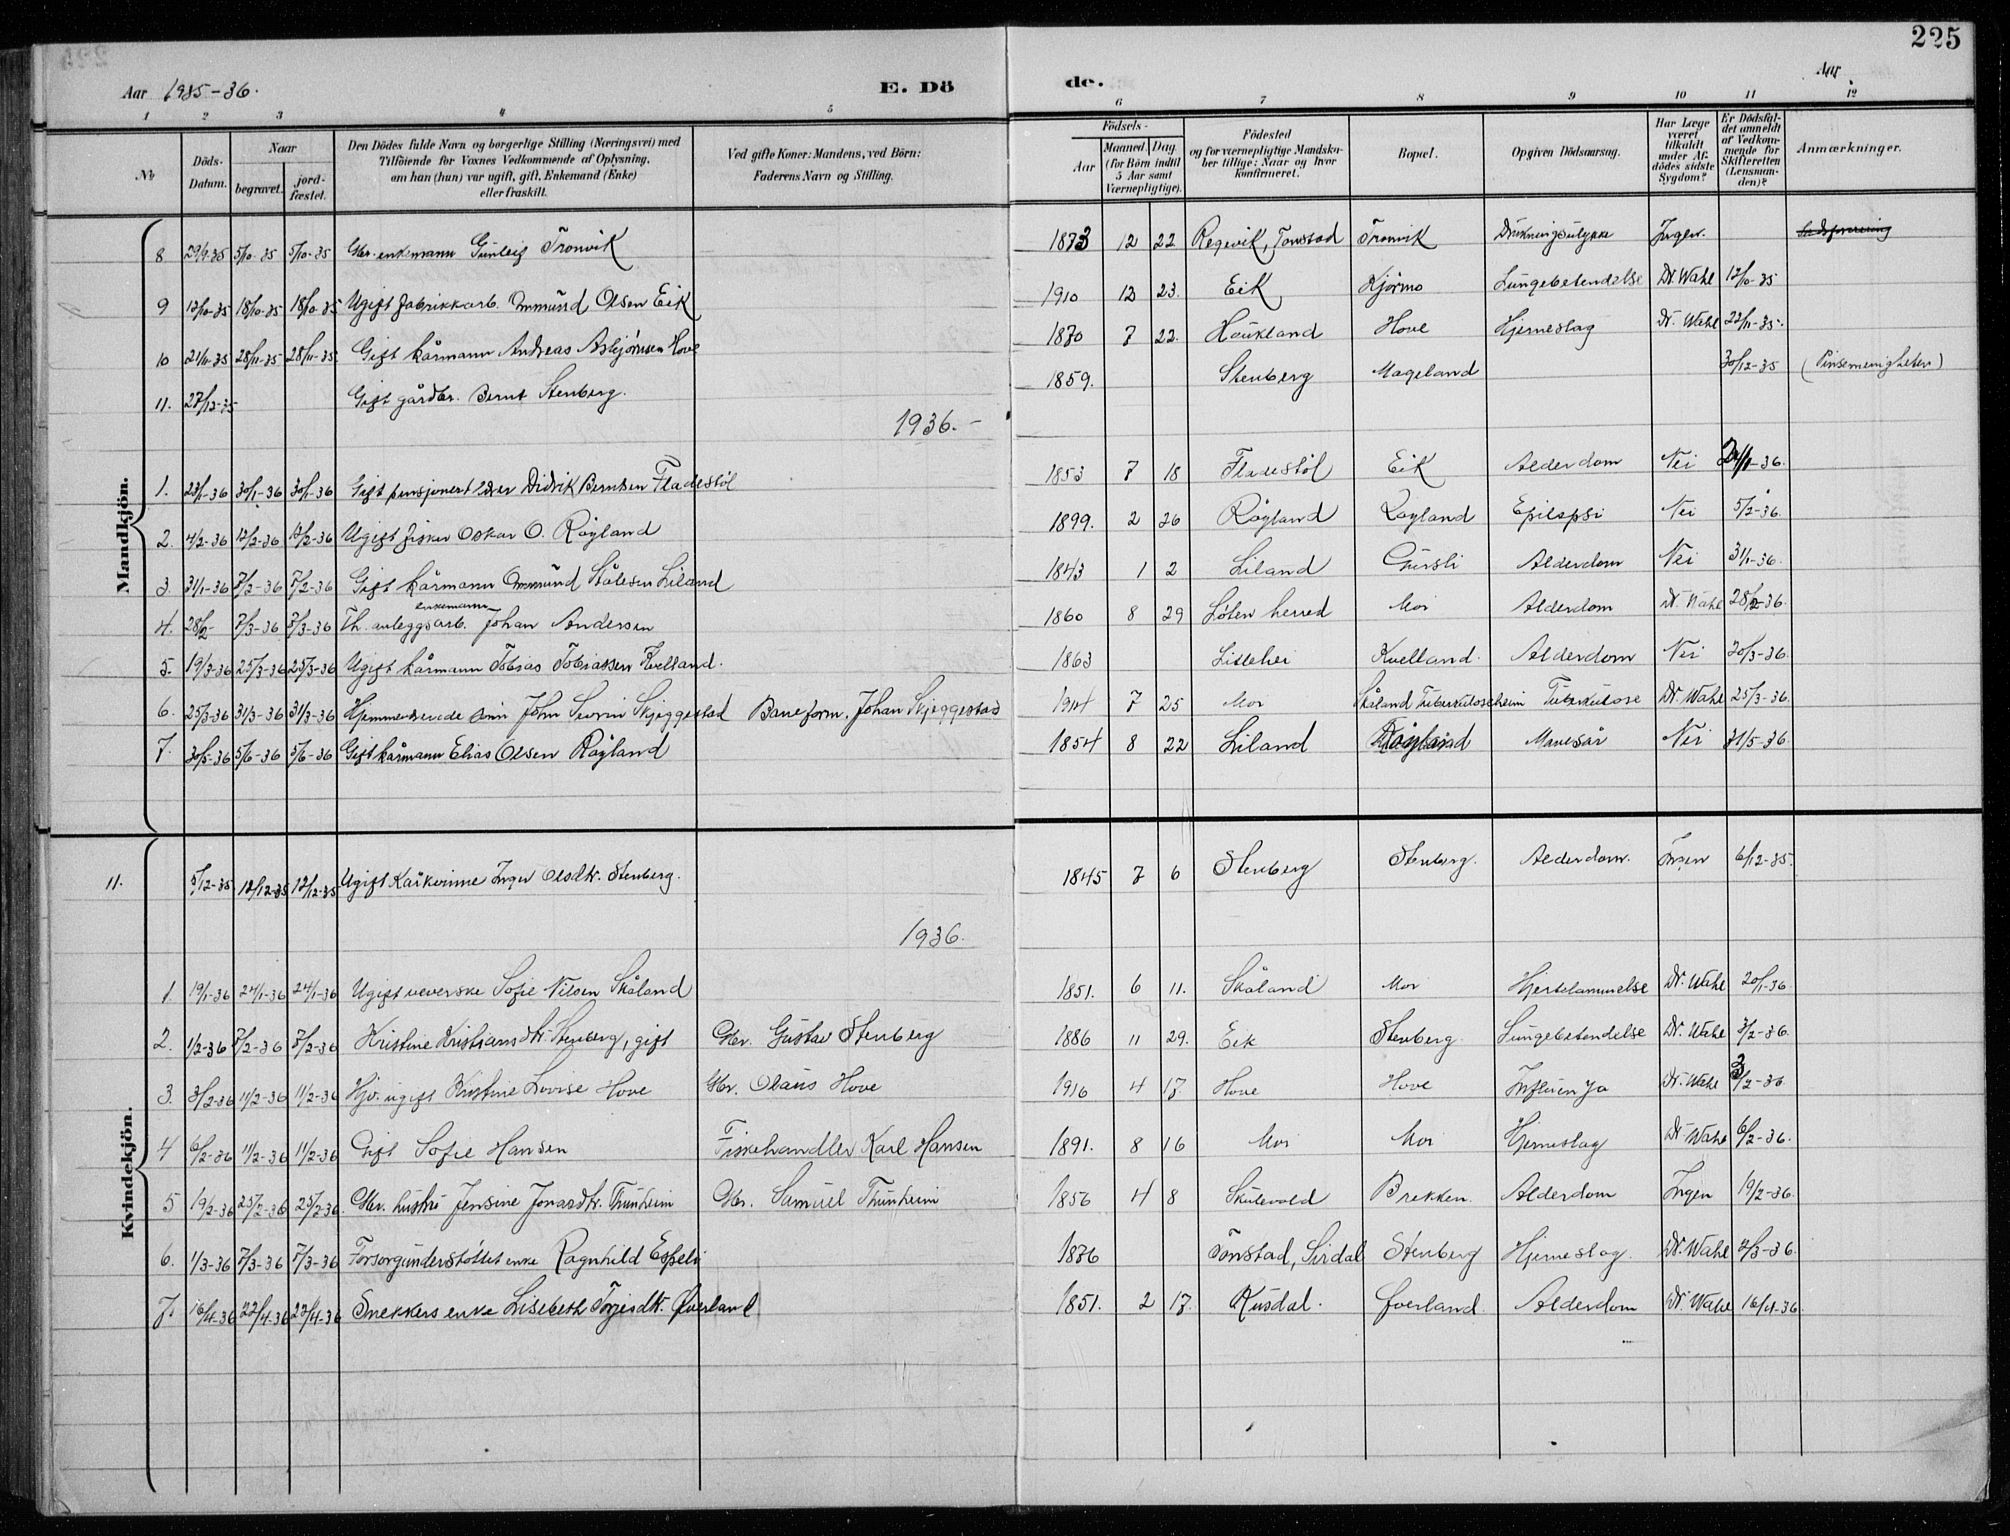 225
Aar 1935-36.
E. Döde.
Aar
1 2 3 4 5 6 7 8 9 10 11 12
No
Döds-Datum.
Naar
begravet.
jordfæstet.
Den Dödes fulde Navn og borgerlige Stilling (Næringsvei) med
Tilföiende for Voxnes Vedkommende af Oplysning,
om han (hun) var ugift, gift, Enkemand (Enke)
eller fraskilt.
Ved gifte Koner: Mandens, ved Börn:
Faderens Navn og Stilling.
Födsels-
Aar
Maaned. Dag
(for Börn indtil
5 Aar samt
Værnepligtige).
Födested
og for værnepligtige Mandskaber tillige: Naar og hvor
Konfirmeret.
Bopæl.
Opgiven Dödsaarsag.
Har Læge
været
tilkaldt
under Afdödes sidste
Sygdom?
Er Dödsfaldet anmeldt
af Vedkommende for
Skifteretten
(Lensmanden)?
Anmærkninger.
Mandkjön.
8 29/9-35 5/10-35 5/10-35 Gbr. enkemann Gunleif Tronvik 1873 12 22 Regevik, Tonstad Tronvik Drukningsulykke Ingen.
9 12/10-35 18/10-35 18/10-35 Ugift fabrikkarb. Ommund Olsen Eik 1910 12 23. Eik Kjørmo Lungebetendelse Dr. Wahl 12/10-35
10 21/11-35 28/11-35 28/11-35 Gift kårmann Andreas Asbjørnsen Hove 1870 7 22. Haukland Hove Hjerneslag Dr. Wahl 22/11-35.
11. 27/12-35 Gift gårdbr. Bernt Stenberg. 1859. Stenberg Mageland 30/12-35 (Pinsemenigheten)
1936.-
1. 23/1-36 30/1-36 30/1-36 Gift pensjonert lærer Didrik Berntsen Fladestøl 1853 7 18 Fladestøl Eik Alderdom Nei 24/1-36.
2. 4/2-36 12/2-36 12/2-36 Ugift fisker Oskar O. Røyland 1899. 2 26 Røyland Røyland Epilepsi Nei 5/2-36.
3. 31/1-36 7/2-36 7/2-36 Gift kårmann Ommund Stålesen Liland 1843 1 2 Liland Gursli Alderdom Nei 31/1-36.
enkemann
4. 28/2- 7/3-36 7/3-36 Th. anleggsarb. Johan Andersen 1860 8 29 Løten herred Moi Alderdom Dr. Wahl 28/2-36.
5. 19/3-36 25/3-36 25/3-36 Ugift kårmann Tobias Tobiassen Kvelland. 1863 Litlehei Kvelland. Alderdom Nei 20/3-36.
6. 25/3-36 31/3-36 31/3-36 Hjemmeværende sønn John Severin Skjeggestad Baneform. Johan Skjeggestad 1914 7 25 Moi Skåland Tuberkuloseheim Tuberkulose Dr. Wahl 25/3-36.
7. 30/5-36 5/6-36 5/6-36 Gift kårmann Elias Olsen Røyland 1854 8 22 Liland Røyland Mavesår Nei 31/5-36.
Kvindekjön.
11. 5/12-35 12/12-35 12/12-35 Ugift Kårkvinne Inger Olsdtr. Stenberg. 1845 7 6 Stenberg Stenberg. Alderdom. Ingen 6/12-35.
1936.
1. 19/1-36 24/1-36 24/1-36 Ugift veverske Sofie Nilsen Skåland 1851. 6 11. Skåland Moi Hjertelammelse Dr. Wahl 20/1-36.
2. 1/2-36 7/2-36 7/2-36 Kristine Kristiansdtr. Stenberg, gift Gbr. Gustav Stenberg 1886 11 29. Eik Stenberg. Lungebetendelse Dr. Wahl 3/2-36.
3. 3/2-36 11/2-36 11/2-36 Hjv. ugift Kristine Lovise Hove Gbr. Olaus Hove 1916 4 17. Hove Hove Influenza Dr. Wahl 3/2-36
4 6/2-36 11/2-36 11/2-36 Gift Sofie Hansen Fiskehandler Karl Hansen 1891. 8 16 Moi Moi Hjerneslag Dr. Wahl 6/2-36.
5 19/2-36 25/2-36 25/2-36. Gbr. hustru Jensine Jonasdtr. Thunheim Gbr. Samuel Thunheim 1856 4 8 Skulevold Brekken. Alderdom Ingen 19/2-36.
6. 1/3-36 7/3-36 7/3-36 Forsorgunderstøttet enke Ragnhild Espeli 1876 Tonstad, Sirdal Stenberg Hjerneslag. Dr. Wahl 2/3-36.
7. 16/4-36 22/4-36 22/4-36 Snekkers enke Lisebeth Torjesdtr. Øverland 1851. 2 17. Rusdal. Øverland. Alderdom Dr. Wahl 16/4-36.